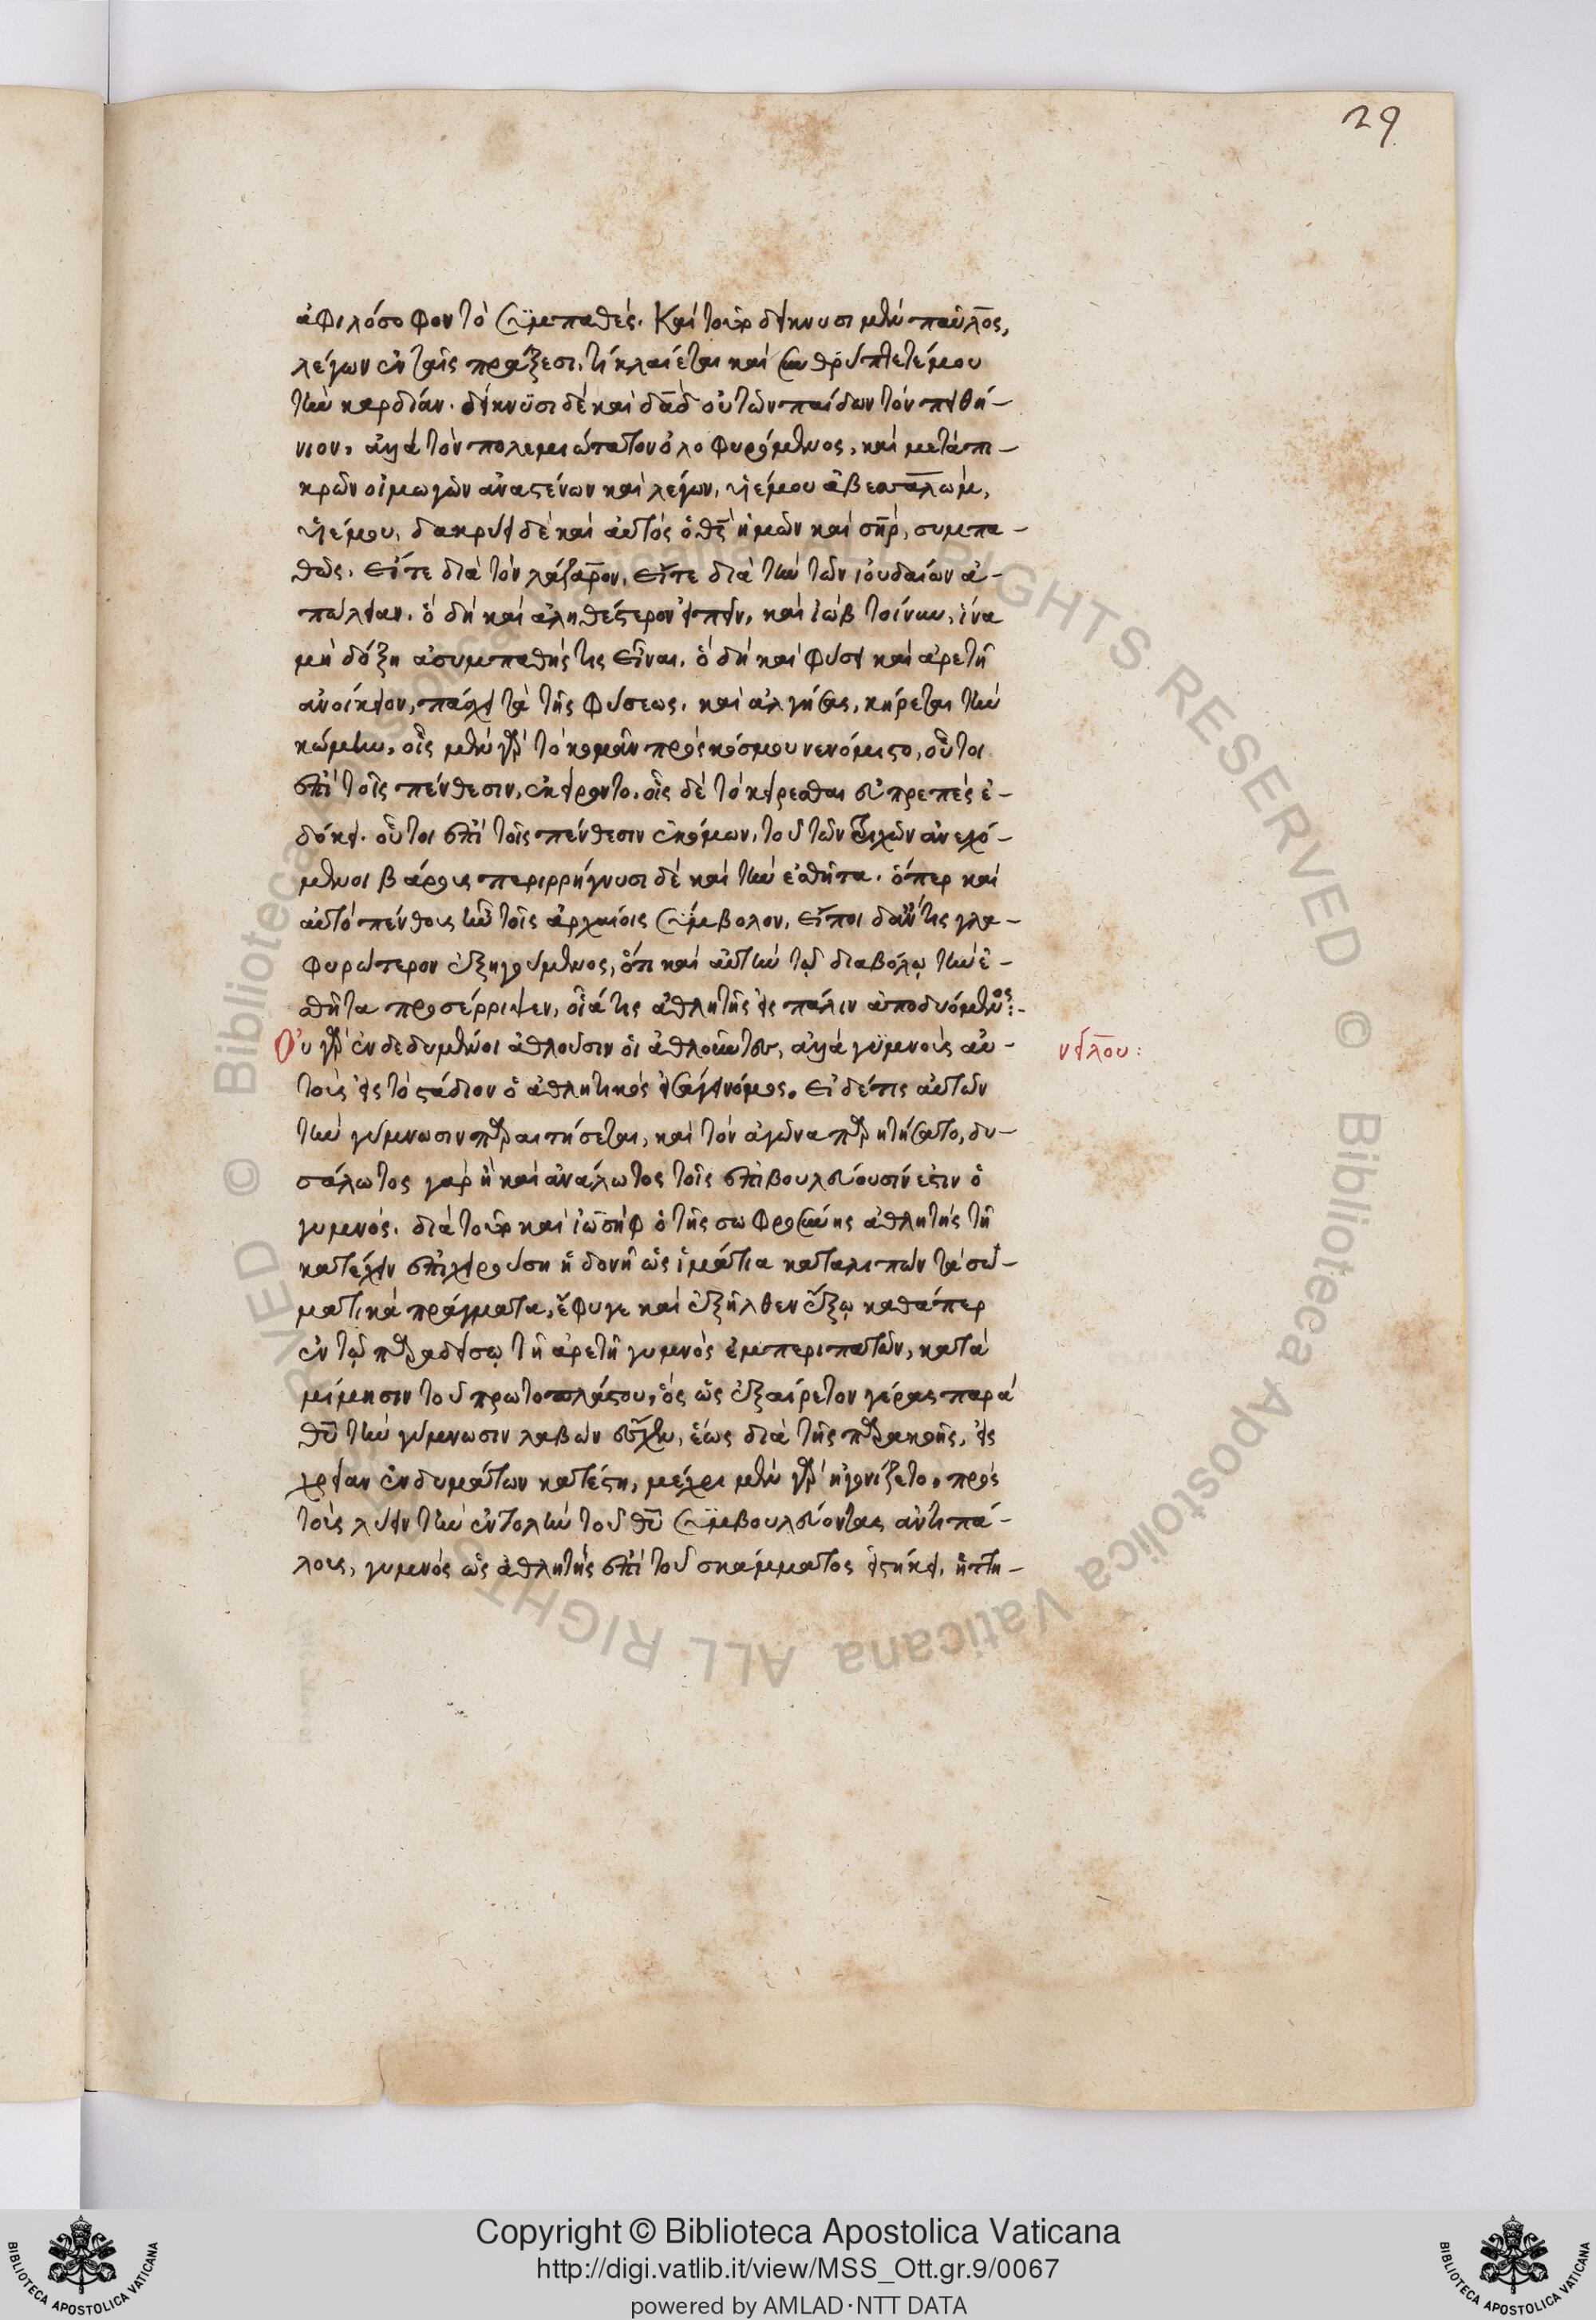 29
ἀφιλόσοφον τὸ συμπαθές. Καὶ τοῦτο δείκνυσι μὲν παῦλος,
λέγων ἐν ταῖς πράξεσι, τί κλαίεται καὶ συνθρύπτετέ μου
τὴν καρδίαν. δείκνυσι δὲ καὶ δαδ οὐ τῶν παίδων τὸν πειθή-
νιον, ἀλλὰ τὸν πολεμιώτατον ὀλοφυρόμενος, καὶ μετὰ πι-
κρῶν οἰμωγῶν ἀναστένων καὶ λέγων, υἱέ μου ἀβεσαλώμ,
υἱέ μου, δακρύει δὲ καὶ αὐτὸς ὁ θς ἡμῶν καὶ σηρ, συμπα-
θῶς. εἴτε διὰ τὸν λάζαρον, εἴτε διὰ τὴν τῶν ἰουδαίων ἀ-
πώλειαν. ὃ δὴ καὶ ἀληθέστερον εἰπεῖν, καὶ ἰὼβ τοίνυν, ἵνα
μὴ δόξη ἀσυμπαθής τις εἶναι. ὃ δὴ καὶ φύσει καὶ ἀρετῆ
ἀνοίκειον, πάσχει τὰ τῆς φύσεως. καὶ ἀλγήσας, κήρεται τὴν
κώμην, οἷς μὲν γὰρ τὸ κομᾶν πρὸς κόσμου νενόμιστο, οὗτοι
ἐπὶ τοῖς πένθεσιν, ἐκείροντο. οἷς δὲ τὸ κείρεσθαι εὐπρεπὲς ἐ-
δόκει. οὗτοι ἐπὶ τοῖς πένθεσιν ἐκόμων, τοῦ τῶν τριχῶν ἀνεχό-
μενοι βάρους περιρρήγνυσι δὲ καὶ τὴν ἐσθῆτα. ὅπερ καὶ
αὐτὸ πένθους ἦν τοῖς ἀρχαίοις σύμβολον, εἴποι δἄν τις γλα-
φυρώτερον ἐξηγούμενος, ὅτι καὶ αὐτὴν τῷ διαβόλῳ τὴν ἐ-
σθῆτα προσέρριψεν, οἷά τις ἀθλητὴς εἰς πάλιν ἀποδυόμενος:-
Οὐ γὰρ ἐνδεδυμένοι ἀθλοῦσιν οἱ ἀθλοῦντες, ἀλλὰ γυμνοὺς αὐ-
τοὺς εἰς τὸ στάδιον ὁ ἀθλητικὸς εἰσάγει νόμος. εἰ δέ τις αὐτῶν
τὴν γύμνωσιν παραιτήσεται, καὶ τὸν ἀγῶνα παρητήσατο, δυ-
σάλωτος γὰρ ἢ καὶ ἀνάλωτος τοῖς ἐπιβουλεύουσίν ἐστιν ὁ
γυμνός. διὰ τοῦτο καὶ ἰωσὴφ ὁ τῆς σωφροσύνης ἀθλητὴς τῆ
κατέχειν ἐπιχειρούση ἡδονῆ ὡς ἱμάτια καταλιπὼν τὰ σω-
ματικὰ πράγματα, ἔφυγε καὶ ἐξῆλθεν ἔξω καθάπερ
ἐν τῷ παραδείσῳ τῆ ἀρετῆ γυμνὸς ἐμπεριπατῶν, κατὰ
μίμησιν τοῦ πρωτοπλάστου, ὃς ὡς ἐξαίρετον γέρας παρὰ
θυ τὴν γύμνωσιν λαβὼν εἶχεν, ἕως διὰ τῆς παρακοῆς, εἰς
χρείαν ἐνδυμάτων κατέστη, μέχρι μὲν γὰρ ἠγωνίζετο, πρὸς
τοὺς λύειν τὴν ἐντολὴν τοῦ θυ συμβουλεύοντας ἀντιπά-
λους, γυμνὸς ὡς ἀθλητὴς ἐπὶ τοῦ σκάμματος εἱστήκει, ἡττη-
νείλου:
Copyright © Biblioteca Apostolica Vaticana
http://digi.vatlib.it/view/MSS_Ott.gr.9/0067
powered by AMLAD·NTT DATA